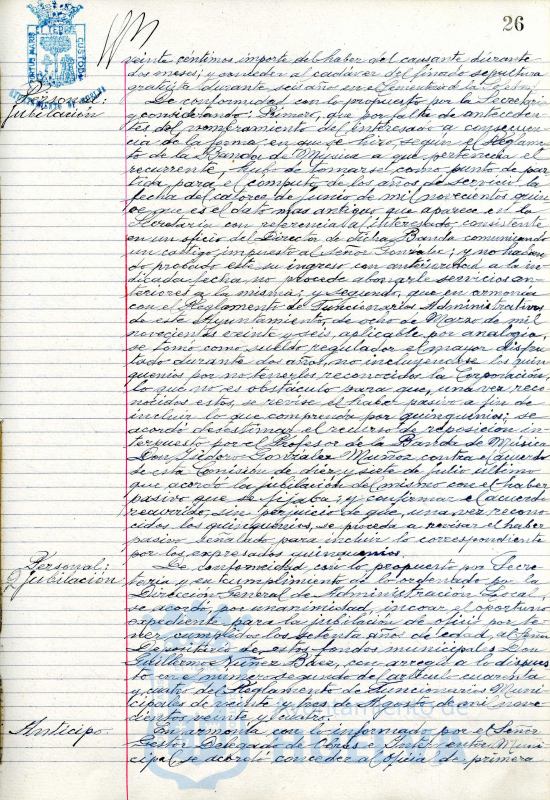 26
veinte céntimos importe del haber del causante durante
dos meses; y conceder al cadaver del finado sepultura
gratuita durante seis años en el Cementerio de la
Personal:
Jubilación
De conformidad con lo propuesto por la Secretaría
y considerando: Primero, que por falta de anteceden-
tes del nombramiento del interesado a consecuen-
cia de la forma en que se hizo, según el Reglamen-
to de la Banda de Música a que pertenecía el
recurrente, hubo de tomarse como punto de par-
tida para el cómputo de los años de servicio la
fecha de catorce de Junio de mil novecientos quin-
ce que es el dato mas antiguo que aparece en la
Secretaría con referencia al interesado consistente
en un oficio del Director de dicha Banda comunicando
un castigo impuesto al Señor González; y no habien-
do probado este su ingreso con anterioridad a la in-
dicada fecha no procede abonarle servicios an-
teriores a la misma; y segundo, que en armonía
con el Reglamento de Funcionarios Administrativos
de este Ayuntamiento, de ocho de Marzo de mil
novecientos veinte y seis, aplicable por analogía,
se tomó como sueldo regulador el mayor disfru-
tado durante dos años, no incluyendose los quin-
quenios por no tenerlos reconocidos la Corporación,
lo que no es obstáculo para que, una vez reco-
nocidos estos, se revise el haber pasivo a fin de
incluir lo que comprenda por quinquenios; se
acordó desestimar el recurso de reposición in-
terpuesto por el Profesor de la Banda de Música
Don Isidoro González Muñoz contra el acuerdo
de esta Comisión de diez y siete de Julio último
que acordó la jubilación del mismo con el haber
pasivo que se fijaba; y confirmar el acuerdo
recurrido, sin perjuicio de que, una vez recono-
cidos los quinquenios, se proceda a revisar el haber
pasivo señalado para incluir lo correspondiente
por los expresados quinquenios.
Personal:
Jubilación
De conformidad con lo propuesto por Secre-
taría y en cumplimiento de lo ordenado por la
Dirección General de Administración Local,
se acordó, por unanimidad, incoar el oportuno
expediente para la jubilación de oficio por te-
ner cumplidos los setenta años de edad, al Señor
Depositario de estos fondos municipales Don
Guillermo Núñez Báez, con arreglo a lo dispues-
to en el número segundo del artículo cuarenta
y cuatro del Reglamento de Funcionarios Muni-
cipales de veinte y tres de Agosto de mil nove-
cientos veinte y cuatro.
Anticipo.
En armonía con lo informado por el Señor
Gestor Delegado de Obras e Interventor Muni-
cipal se acordó conceder al Oficial de primera